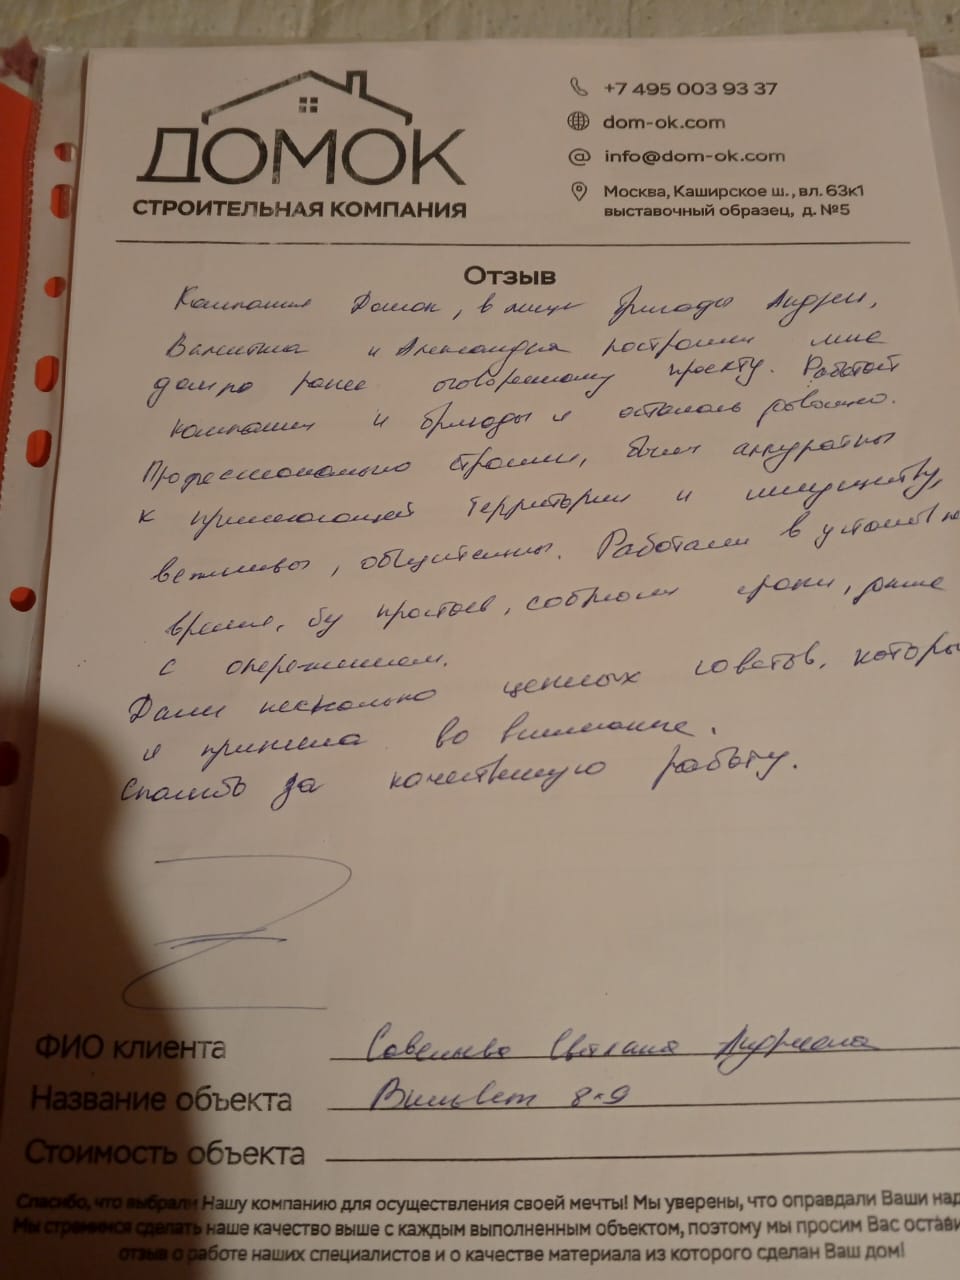 ДОМОК
СТРОИТЕЛЬНАЯ КОМПАНИЯ
+7 495 003 93 37
dom-ok.com
info@dom-ok.com
Москва, Каширское ш., вл. 63к1
выставочный образец, д. №5
Отзыв
Компания Домок, в лице бригады Андрея,
Валентина и Александра построили мне
дом по ранее оговоренному проекту. Работой
компании и бригады я осталась довольна.
Профессионально строили, были аккуратны
к прилегающей территории и имуществу,
вежливы, общительны. Работали в установленное
время, без простоев, соблюдали сроки, даже
с опережением.
Дали несколько ценных советов, которые
я приняла во внимание.
Спасибо за качественную работу.
ФИО клиента Савельева Светлана
Название объекта 8х9
Стоимость объекта
Спасибо, что выбрали Нашу компанию для осуществления своей мечты! Мы уверены, что оправдали Ваши над
Мы стремимся сделать наше качество выше с каждым выполненным объектом, поэтому мы просим Вас остави
отзыв о работе наших специалистов и о качестве материала из которого сделан Ваш дом!